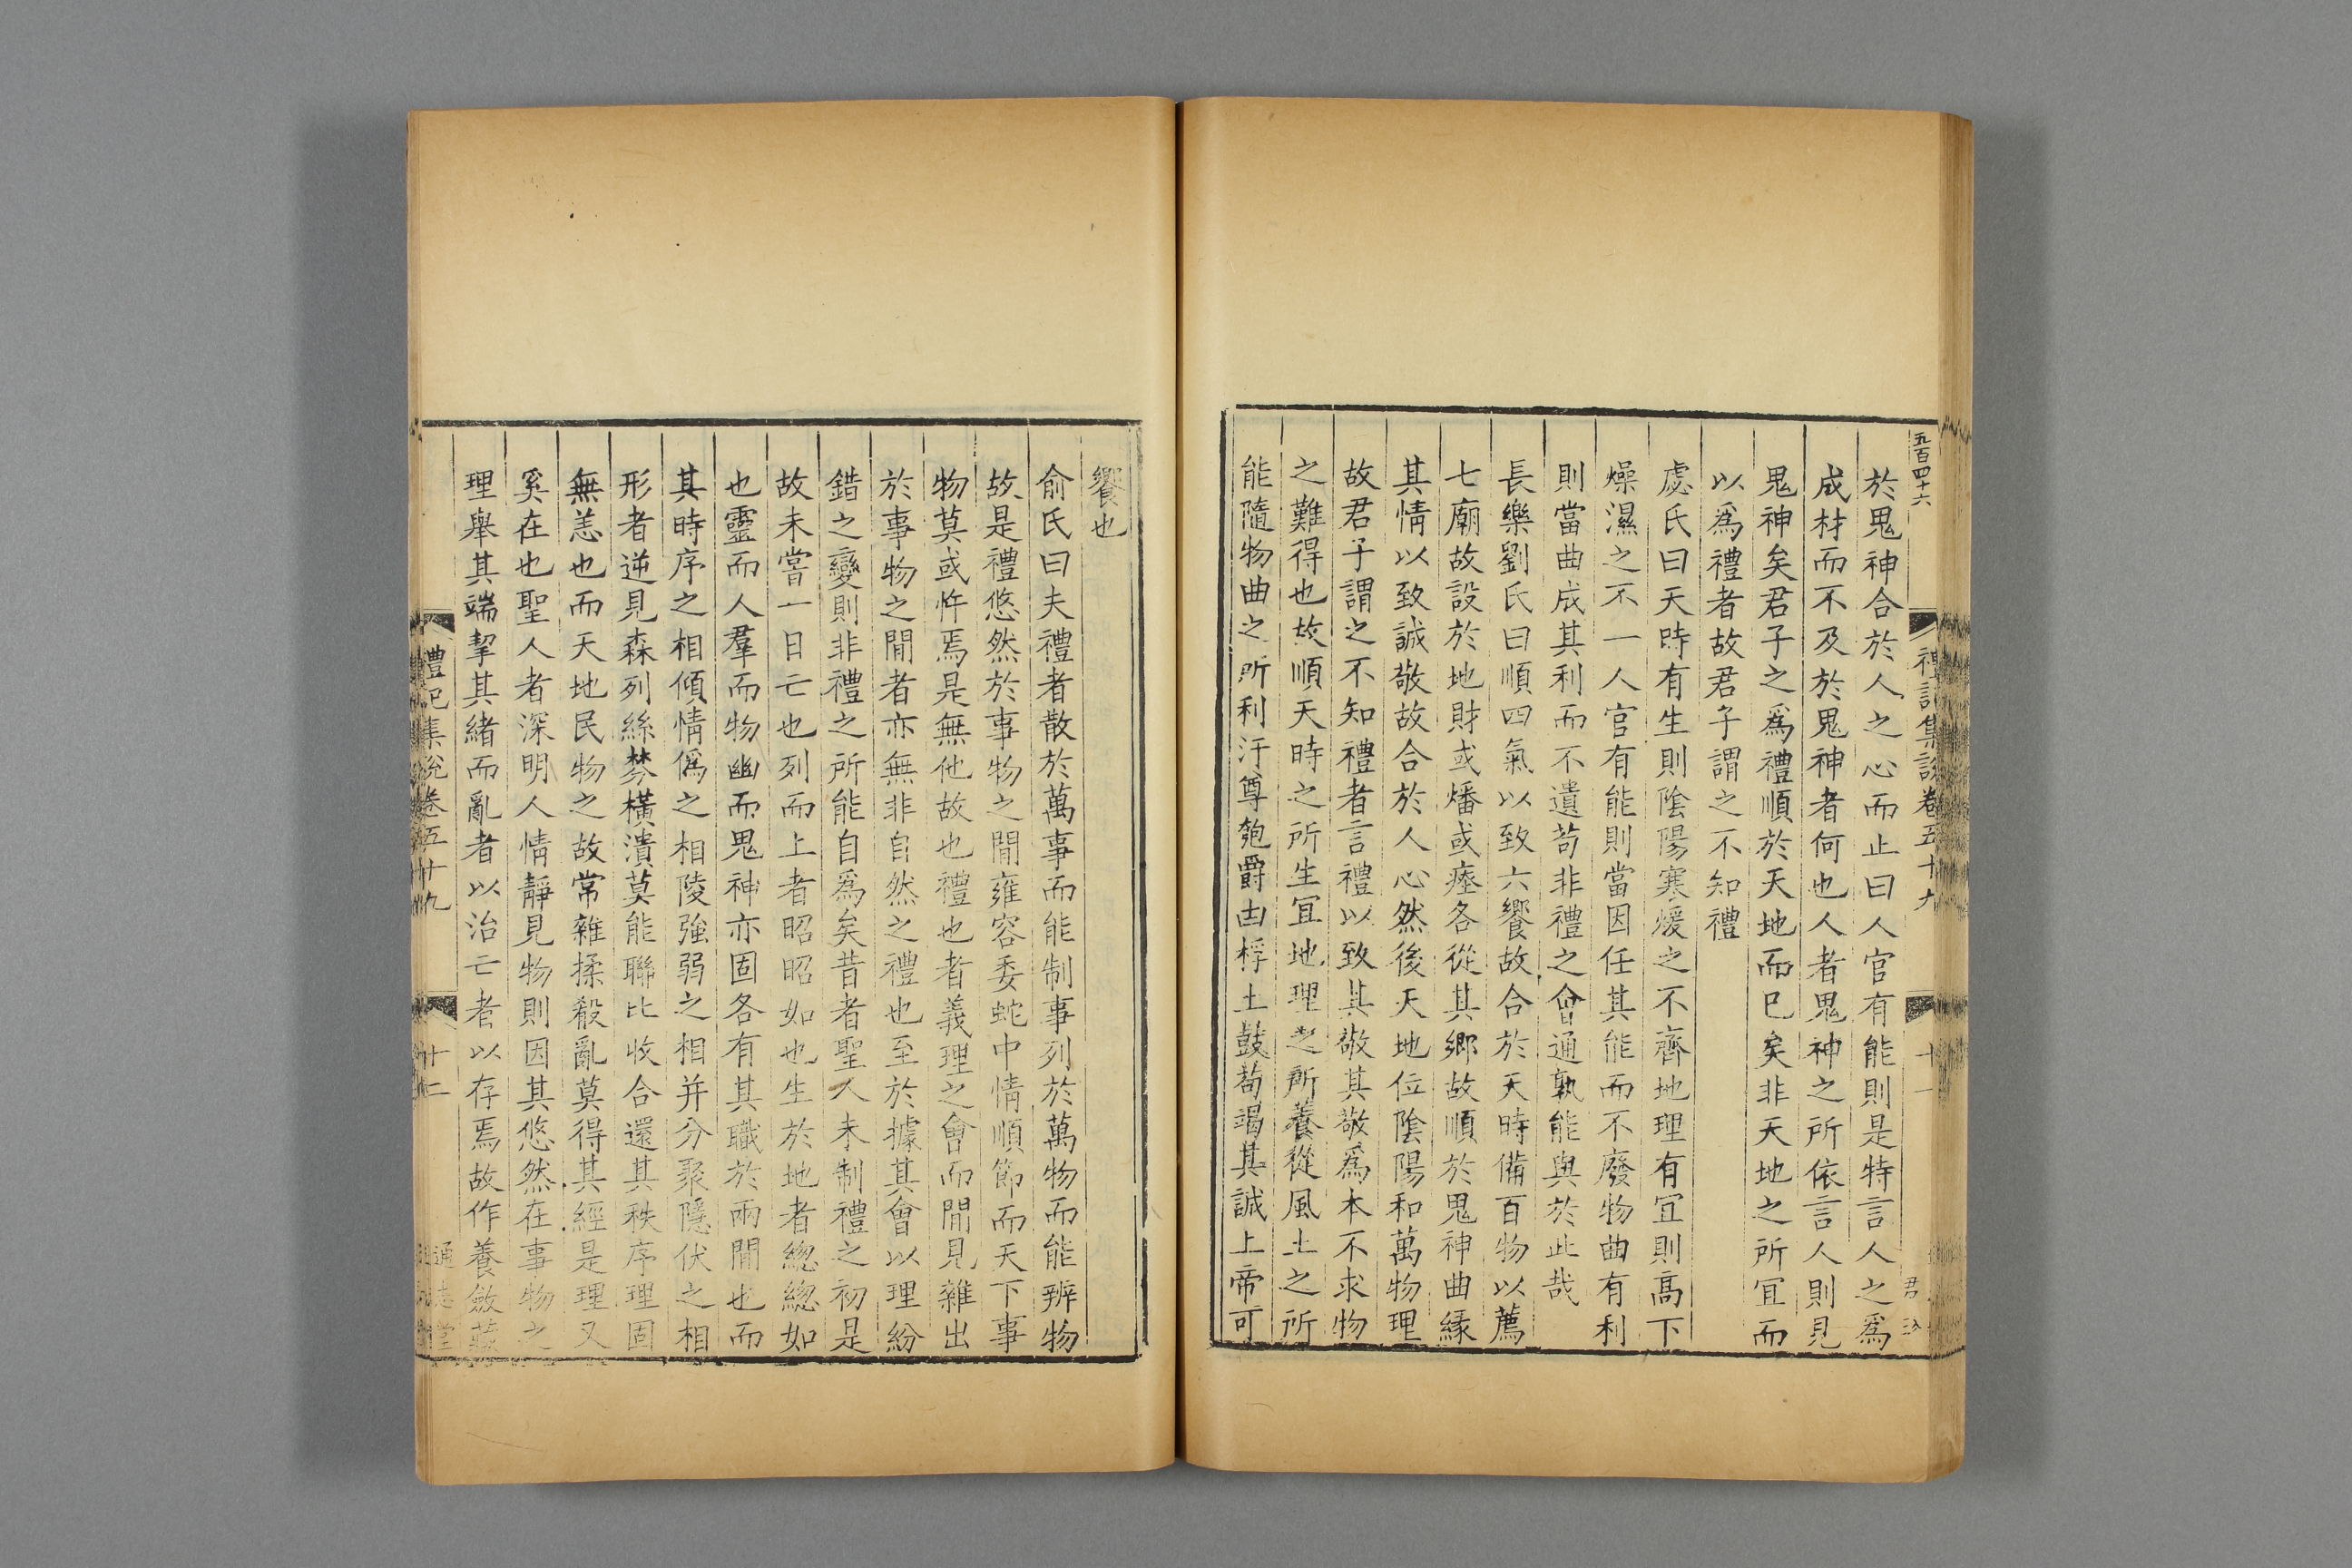 五百四十六
禮記集說卷五十九
十一
君
於鬼神合於人之心而止曰人官有能則是特言人之爲
成材而不及於鬼神者何也人者鬼神之所依言人則見
鬼神矣君子之爲禮順於天地而已矣非天地之所宜而
以爲禮者故君子謂之不知禮
慮氏曰天時有生則陰陽寒煖之不齊地理有宜則高下
燥濕之不一人官有能則當因任其能而不廢物曲有利
則當曲成其利而不遺苟非禮之會通孰能與於此哉
長樂劉氏曰順四氣以致六饗故合於天時備百物以薦
七廟故設於地財或燔或瘞各從其鄉故順於鬼神曲緣
其情以致誠敬故合於人心然後天地位陰陽和萬物理
故君子謂之不知禮者言禮以致其敬其敬爲本不求物
之難得也故順天時之所生宜地理之所養從風土之所
能隨物曲之所利汙尊匏爵由桴土鼓苟竭其誠上帝可
饗也
俞氏曰夫禮者散於萬事而能制事列於萬物而能辨物
故是禮悠然於事物之間雍容委蛇中情順節而天下事
物莫或忤焉是無他故也禮也者義理之會而間見雜出
於事物之間者亦無非自然之禮也至於據其會以理紛
錯之變則非禮之所能自爲矣昔者聖人未制禮之初是
故未嘗一日亡也列而上者昭昭如也生於地者總總如
也靈而人羣而物幽而鬼神亦固各有其職於兩間也而
其時序之相傾情僞之相陵強弱之相并分聚隱伏之相
形者逆見森列絲棼橫潰莫能聯比收合還其秩序理固
無恙也而天地民物之故常雜揉殽亂莫得其經是理又
奚在也聖人者深明人情靜見物則因其悠然在事物之
理舉其端挈其緒而亂者以治亡者以存焉故作養斂藏
禮記集說卷五十九
十二
通志堂